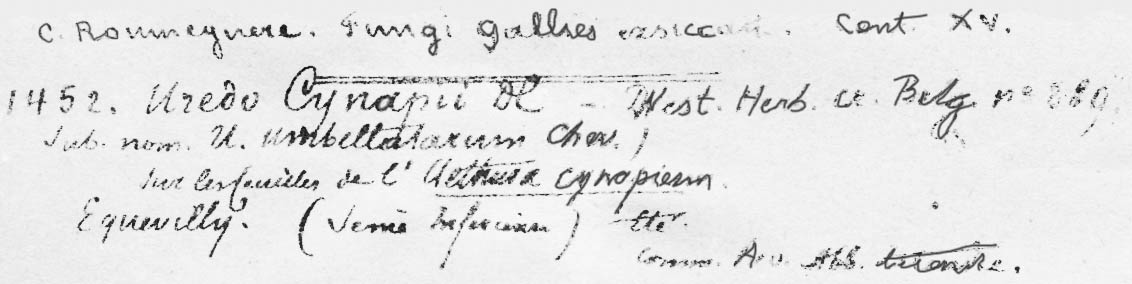 C. Roumeguere. Fungi Gallici exsiccati. Cent. XV.
1452. Uredo Cynapii DC – West. Herb. cr. Belg. nº 889.
Sub. nom. U. umbellatarum Chev.)
sur les feuilles de l' Aethusa cynapium.
Equevilly. (Seine inférieure) Eté.
Comm. Abb.